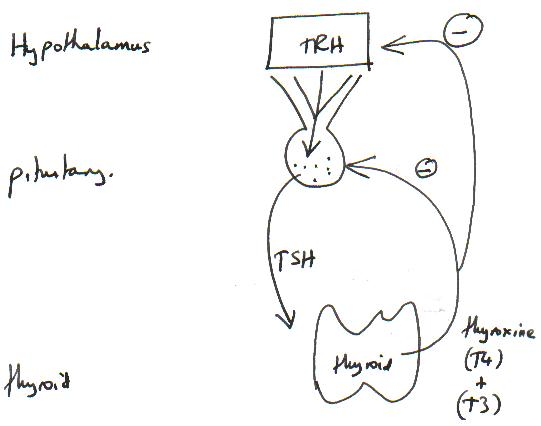 Hypothalamus
TRH
−
pituitary.
−
TSH
thyroid
thyroid
thyroxine
(T4)
+
(T3)